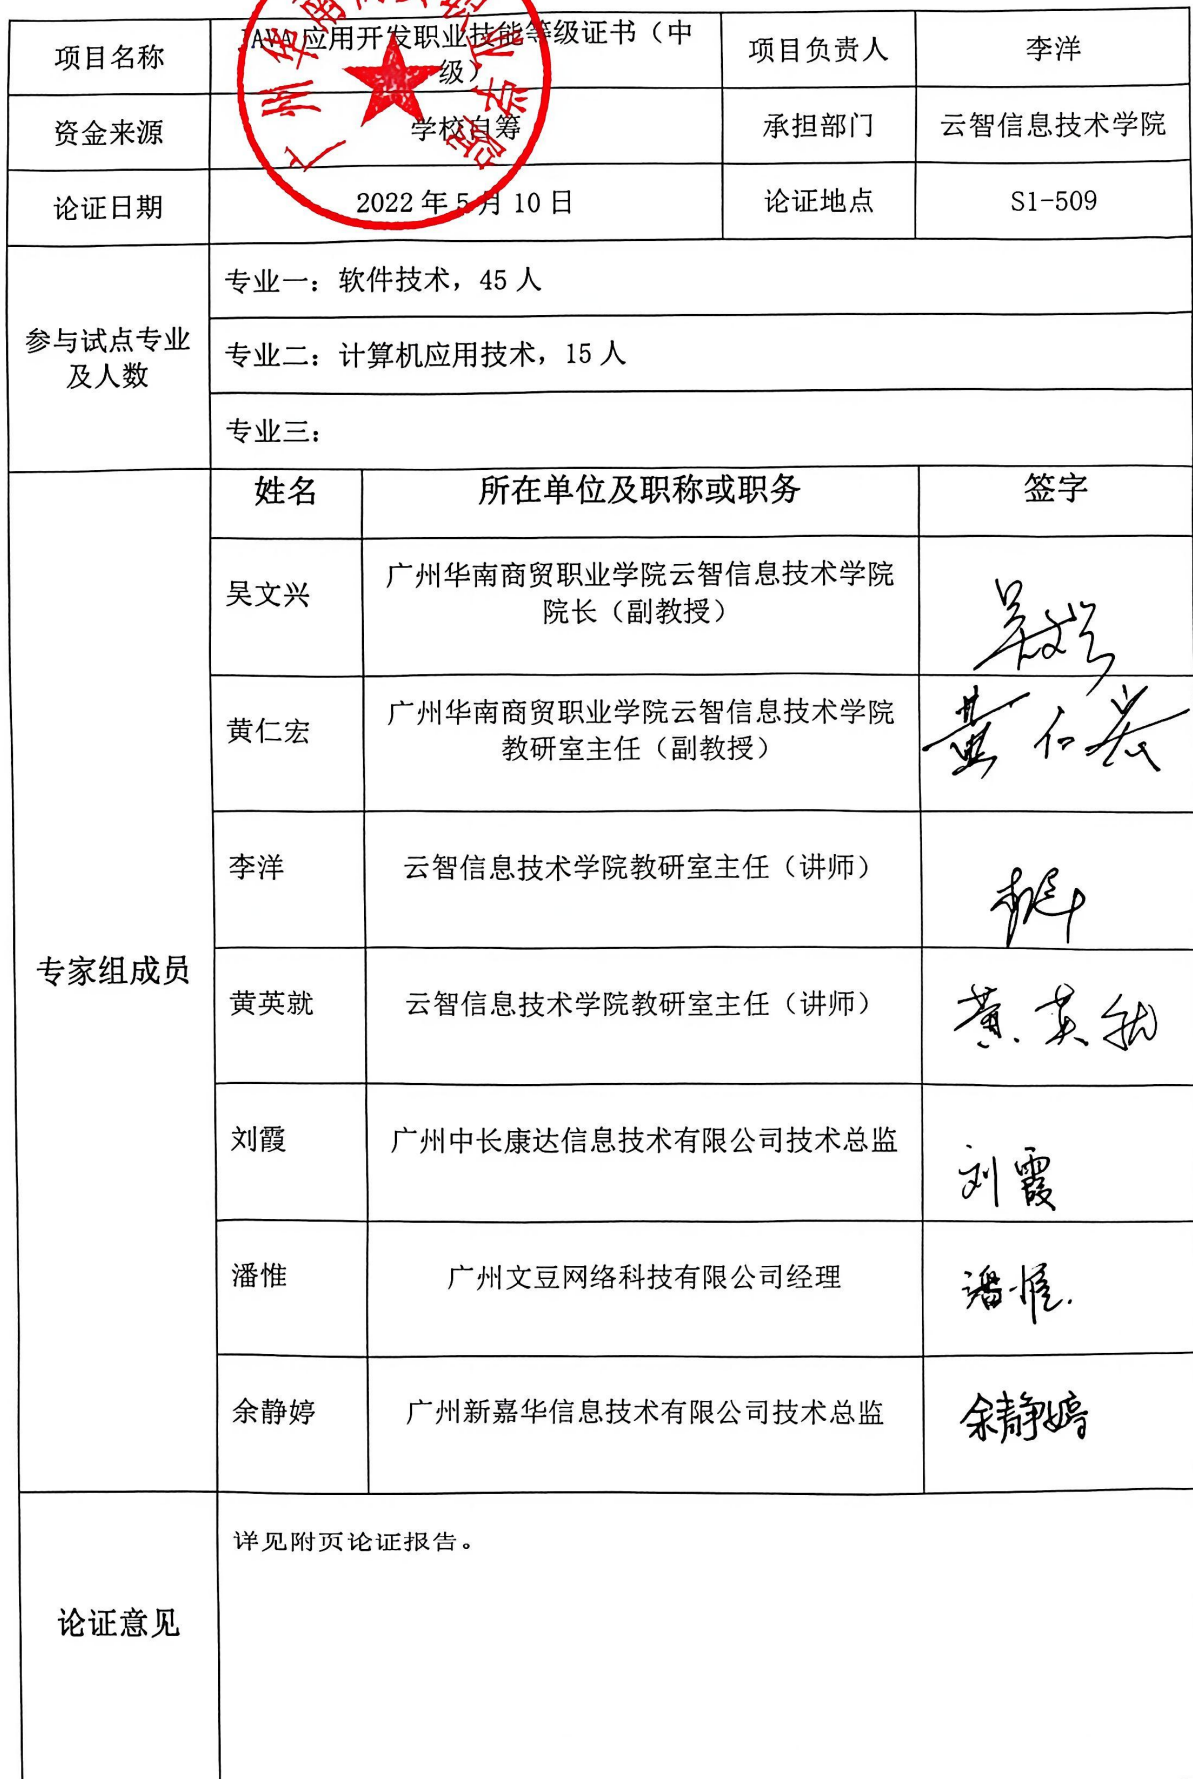 项目名称
JAVA 应用开发职业技能等级证书（中
级）
项目负责人
李洋
资金来源
学校自筹
承担部门
云智信息技术学院
论证日期
2022 年 5 月 10 日
论证地点
S1-509
参与试点专业
及人数
专业一：软件技术，45 人
专业二：计算机应用技术，15 人
专业三：
专家组成员
姓名
所在单位及职称或职务
签字
吴文兴
广州华南商贸职业学院云智信息技术学院
院长（副教授）
吴文兴
黄仁宏
广州华南商贸职业学院云智信息技术学院
教研室主任（副教授）
黄仁宏
李洋
云智信息技术学院教研室主任（讲师）
李洋
黄英就
云智信息技术学院教研室主任（讲师）
黄英就
刘霞
广州中长康达信息技术有限公司技术总监
刘霞
潘惟
广州文豆网络科技有限公司经理
潘惟.
余静婷
广州新嘉华信息技术有限公司技术总监
余静婷
论证意见
详见附页论证报告。